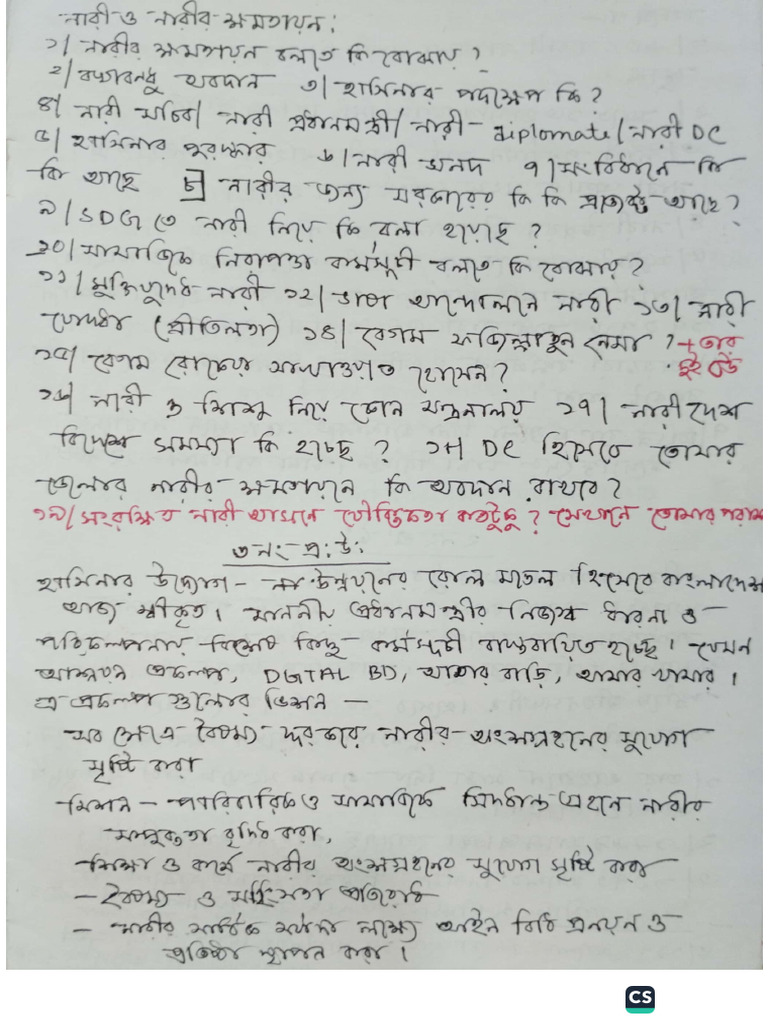 নারী ও নারীর ক্ষমতায়ন:
১। নারীর ক্ষমতায়ন বলতে কি বোঝায়?
২। বঙ্গবন্ধু অবদান ৩। হাসিনার পদক্ষেপ কি?
৪। নারী সচিব/ নারী প্রধানমন্ত্রী/ নারী- diplomate/ নারী DC
৫। হাসিনার পুরস্কার ৬। নারী সনদ ৭। সংবিধানে কি
কি আছে ৮। নারীর জন্য সরকারের কি কি প্রজেক্ট আছে?
৯। SDG তে নারী নিয়ে কি বলা হয়েছে?
১০। সামাজিক নিরাপত্তা কর্মসূচী বলতে কি বোঝায়?
১১। মুক্তিযুদ্ধে নারী ১২। ভাষা আন্দোলনে নারী ১৩। নারী
যোদ্ধা (প্রীতিলতা) ১৪। বেগম ফজিলাতুন নেসা? + তার
দুই বউ
১৫। বেগম রোকেয়া সাখাওয়াত হোসেন?
১৬। নারী ও শিশু নিয়ে কোন মন্ত্রনালয় ১৭। নারী দেশ
বিদেশে সমস্যা কি হচ্ছে? ১৮। DC হিসেবে তোমার
জেলার নারীর ক্ষমতায়নে কি অবদান রাখবে?
১৯। সংরক্ষিত নারী আসনে যৌক্তিকতা কতটুকু? সেখানে তোমার
৩ নং প্র: উ:
হাসিনার উদ্যোগ - উন্নয়নের রোল মডেল হিসেবে বাংলাদেশ
আজ স্বীকৃত। মাননীয় প্রধানমন্ত্রীর নিজস্ব ধারনা ও
পরিকল্পনায় বিশেষ কিছু কর্মসূচী বাস্তবায়িত হচ্ছে। যেমন
আশ্রয়ন প্রকল্প, DGTAL BD, আমার বাড়ি, আমার খামার।
এ প্রকল্প গুলোর ভিশন —
সব ক্ষেত্রে বৈষম্য দূর করে নারীর অংশগ্রহনের সুযোগ
সৃষ্টি করা
মিশন — পারিবারিক ও সামাজিক সিদ্ধান্ত গ্রহনে নারীর
সম্পৃক্ততা বৃদ্ধি করা,
শিক্ষা ও কর্মে নারীর অংশগ্রহনের সুযোগ সৃষ্টি করা
— বৈষম্য ও সহিংসতা প্রতিরোধ
— নারীর সার্বিক মর্যাদা লক্ষ্যে আইন বিধি প্রনয়ন ও
প্রতিষ্ঠা স্থাপন করা।
CS